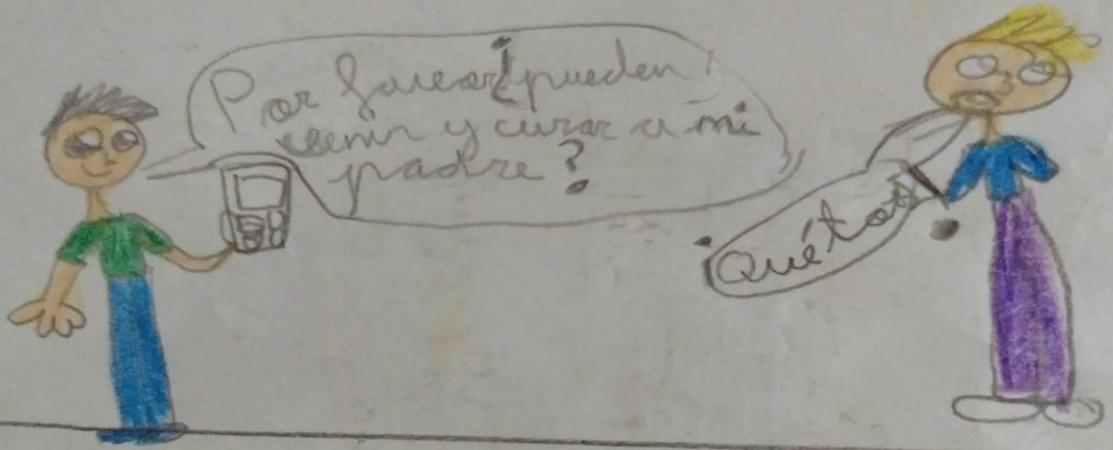 Por favor ¿pueden
venir y curar a mi
padre?
¡Qué tos!